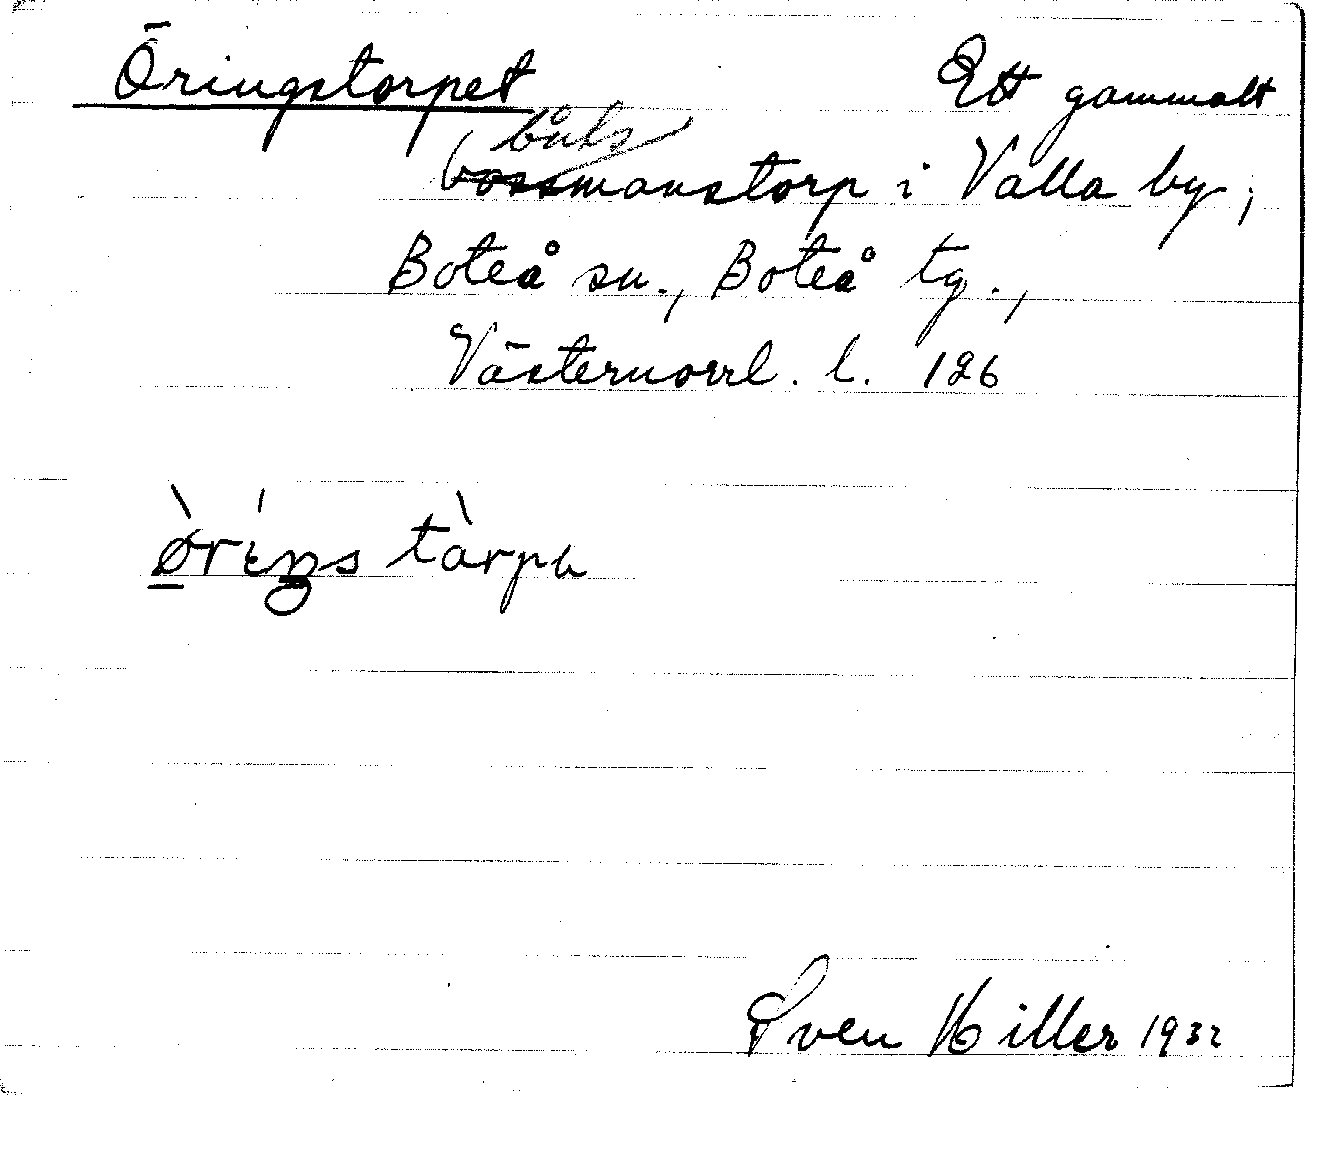 Öringstorpet Ett gammalt
båtsmanstorp i Valla by,
Boteå sn., Boteå tg.,
Västernorrl. l. 126
tàrpə
Sven Hiller 1932